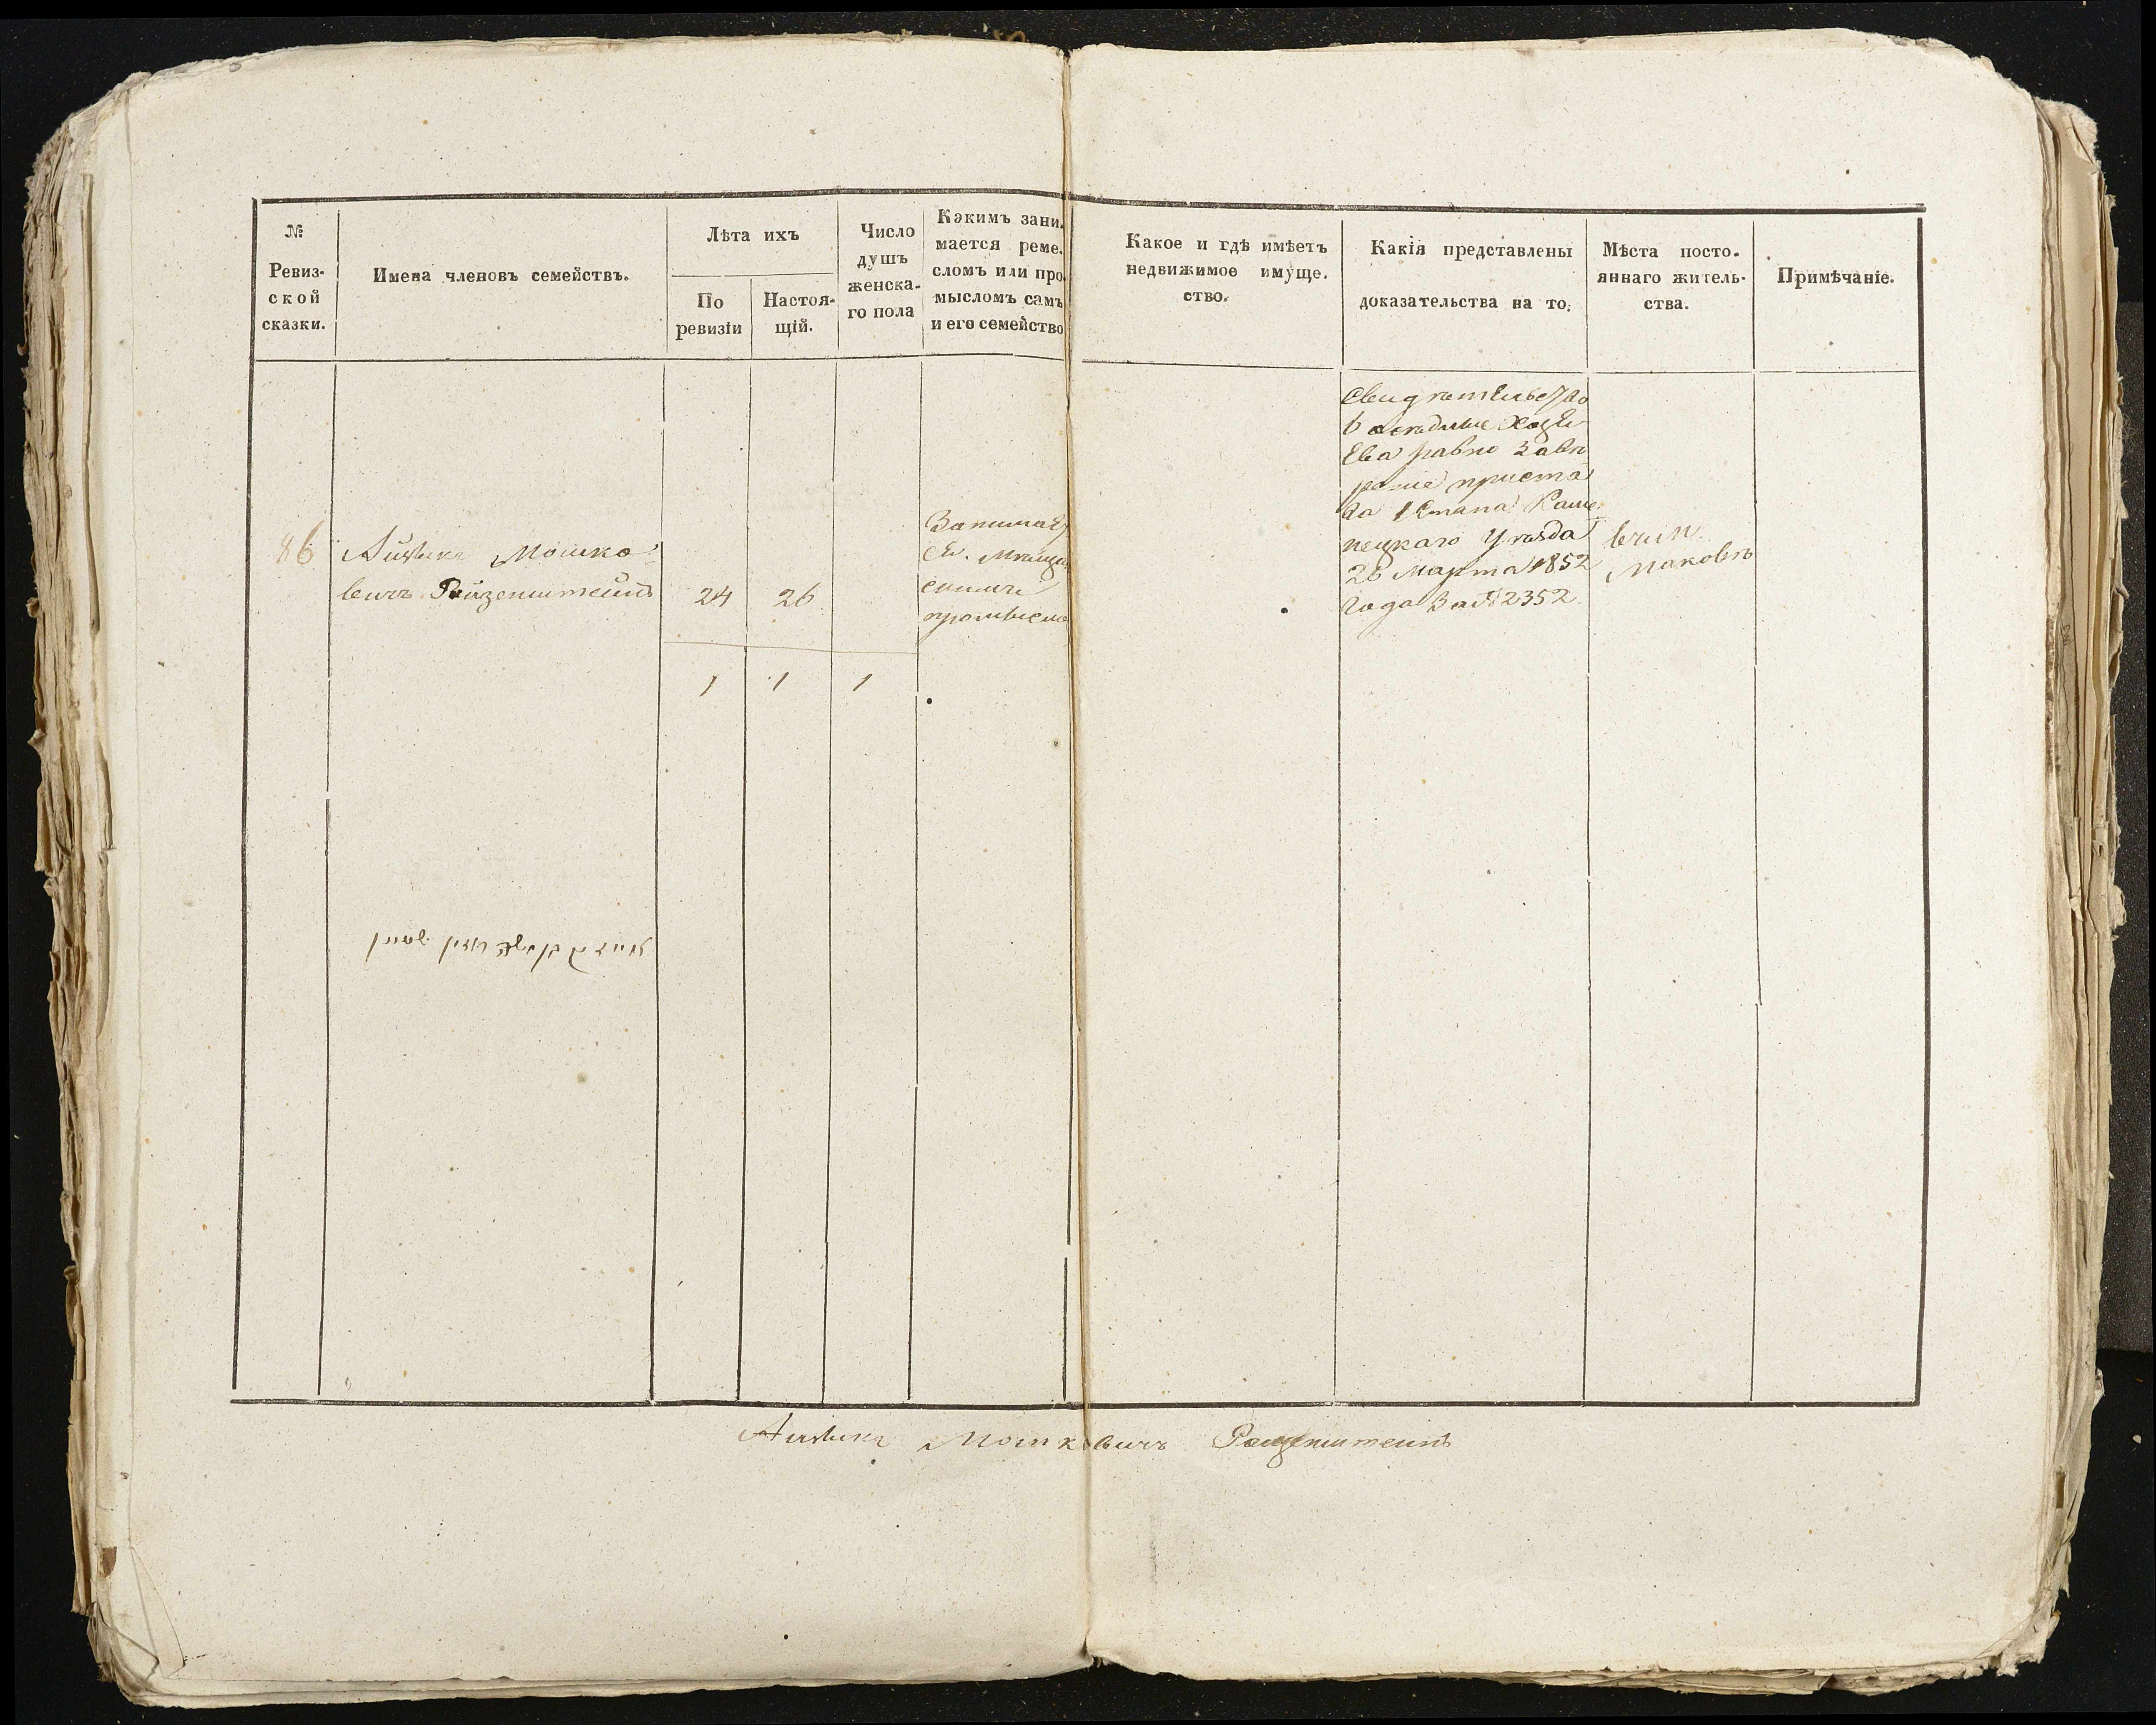 №
Ревиз-
ской
сказки.
Имена членовъ семействъ.
Лѣта ихъ
По
ревизіи
Настоя-
щій.
Число
душъ
женска-
го пола
Какимъ зани-
мается реме-
сломъ или про-
мысломъ самъ
и его семейство
Какое и гдѣ имѣетъ
недвижимое имуще-
ство.
Какія представлены
доказательства на то.
Мѣста посто-
яннаго житель-
ства.
Примѣчаніе.
86
Мошко-
вичъ Райзенштейнъ
24
26
промысло
1
1
1
равно завѣ
реніе приста
ва 1 Стана Каме-
нецкаго Уѣзда
26 Марта 1852
года За № 2352
Маковѣ
Мошковичъ Райзенштейнъ